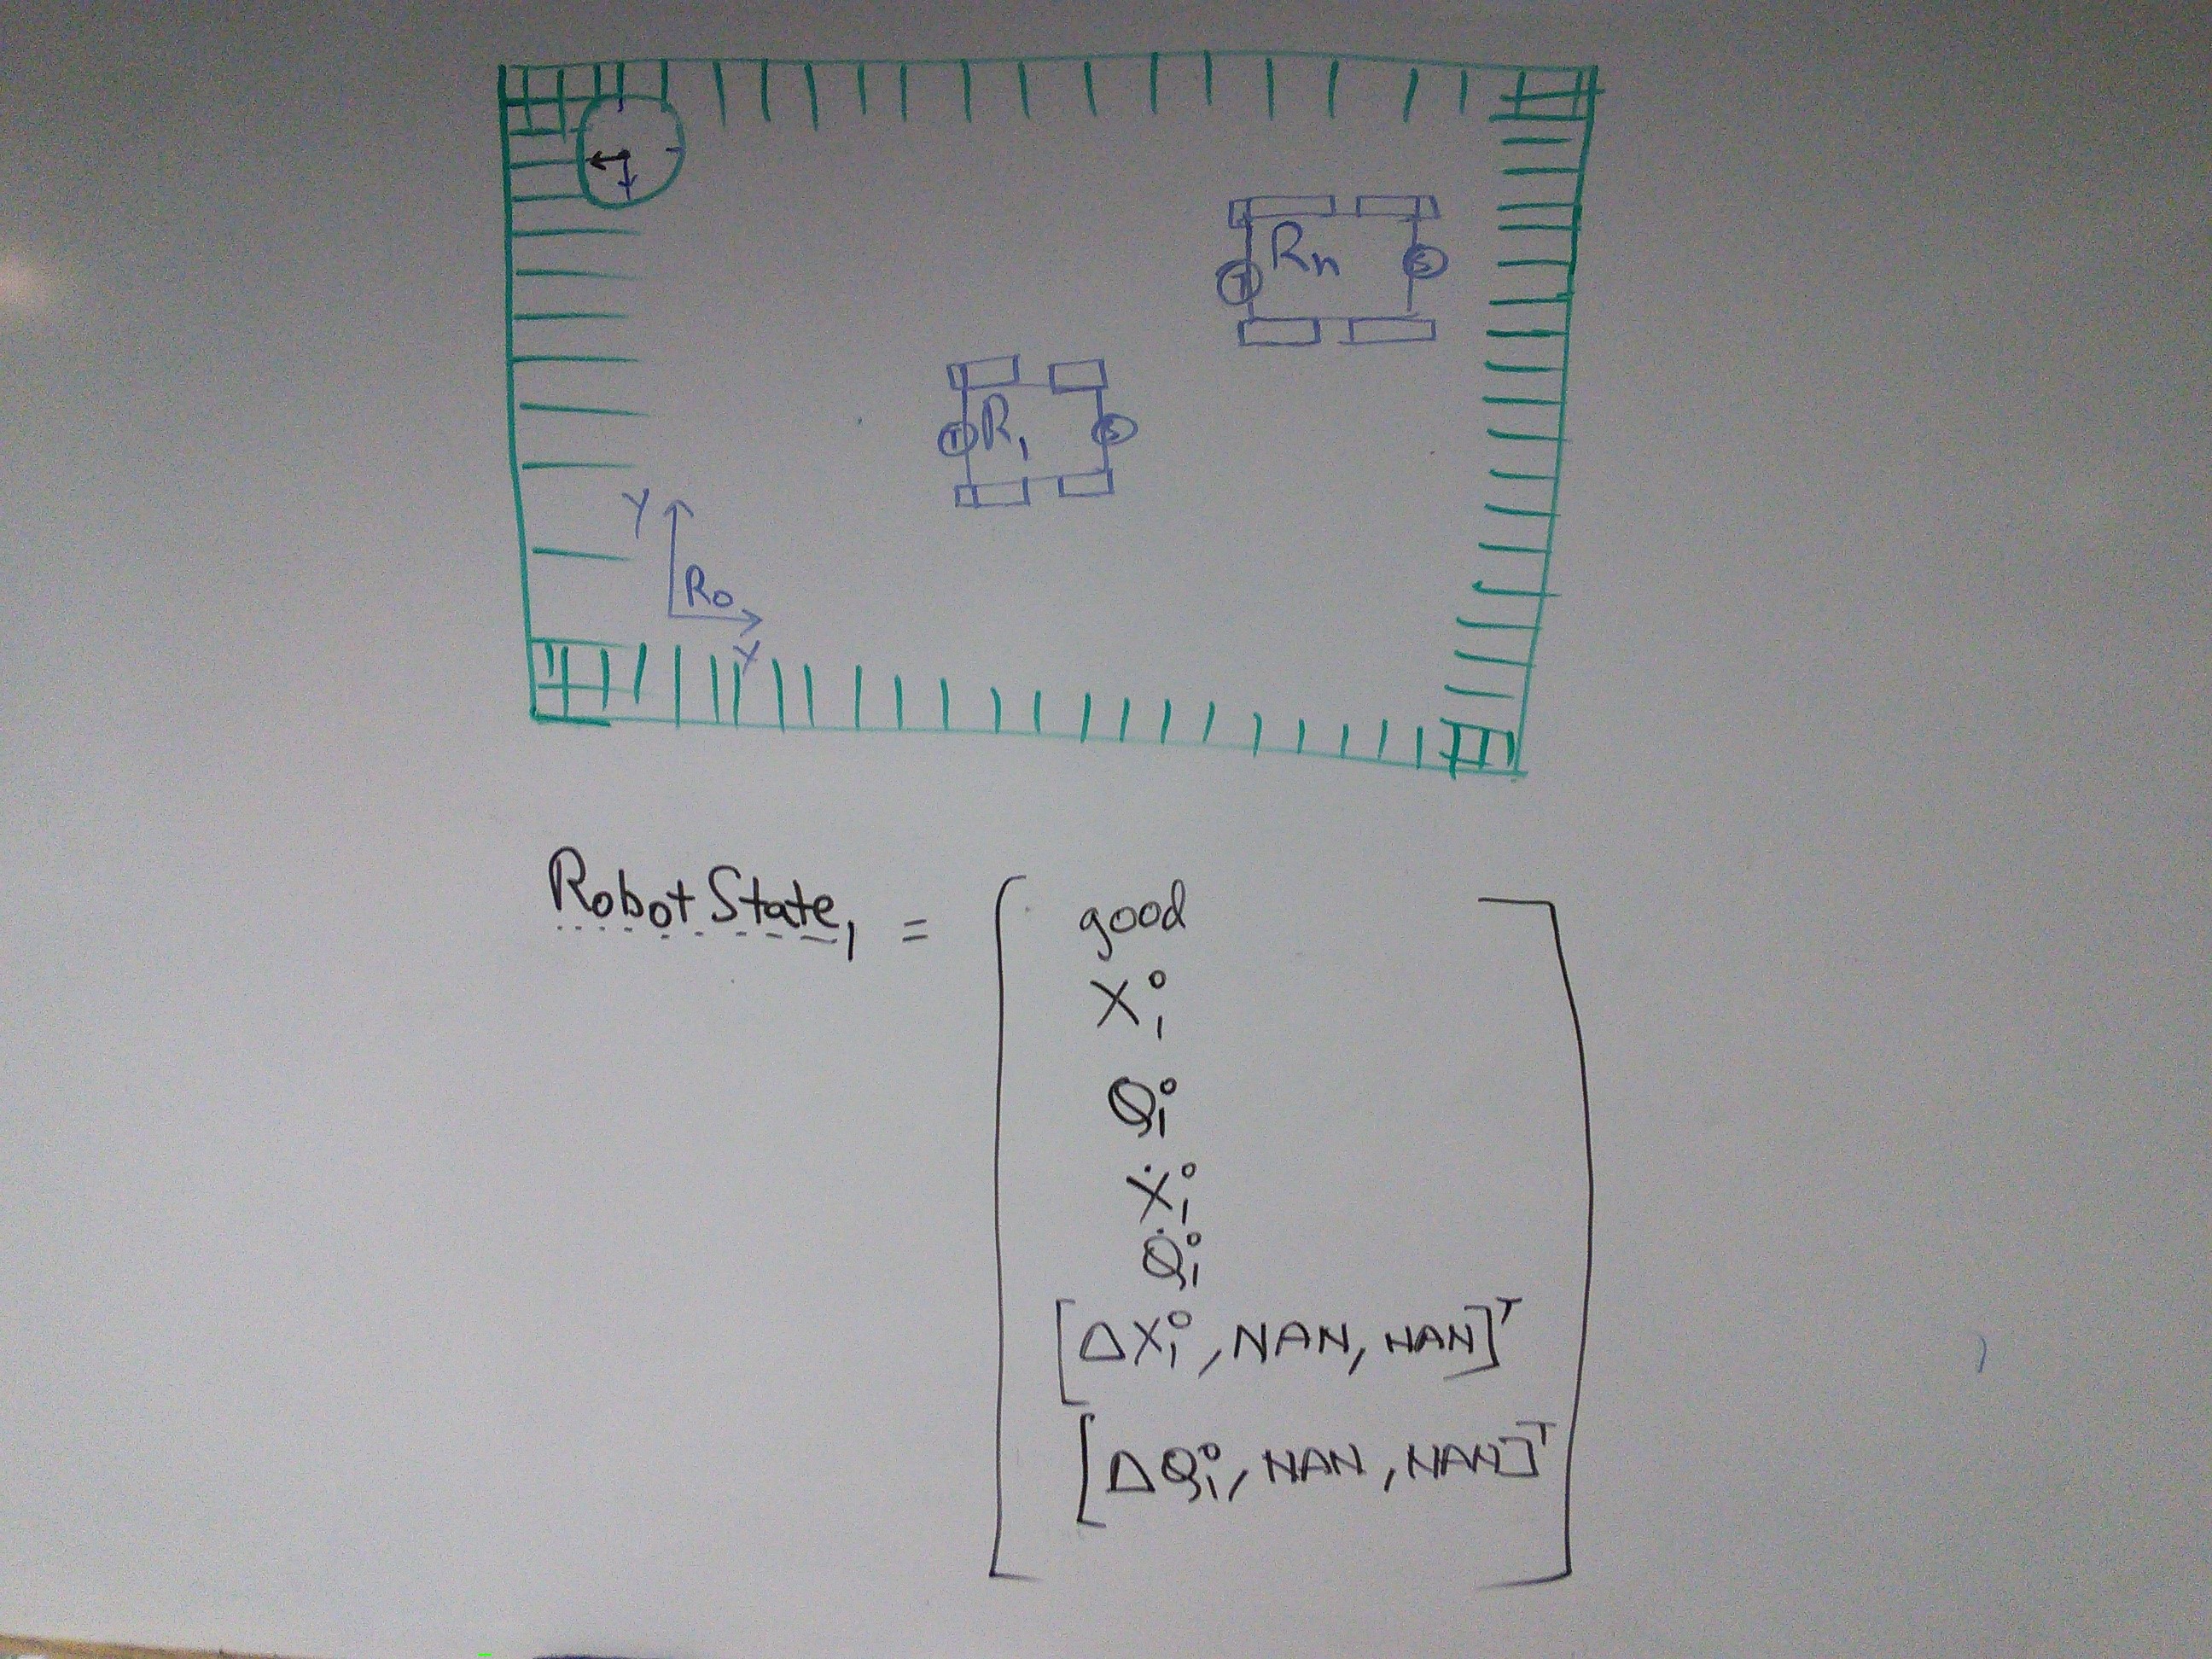 Rn
R₁
Y
R₀
X
Robot State₁ = [ good
X₁⁰
Q₁⁰
Ẋ₁⁰
Q̇₁⁰
[ΔX₁⁰, NAN, NAN]ᵀ
[ΔQ₁⁰, NAN, NAN]ᵀ ]